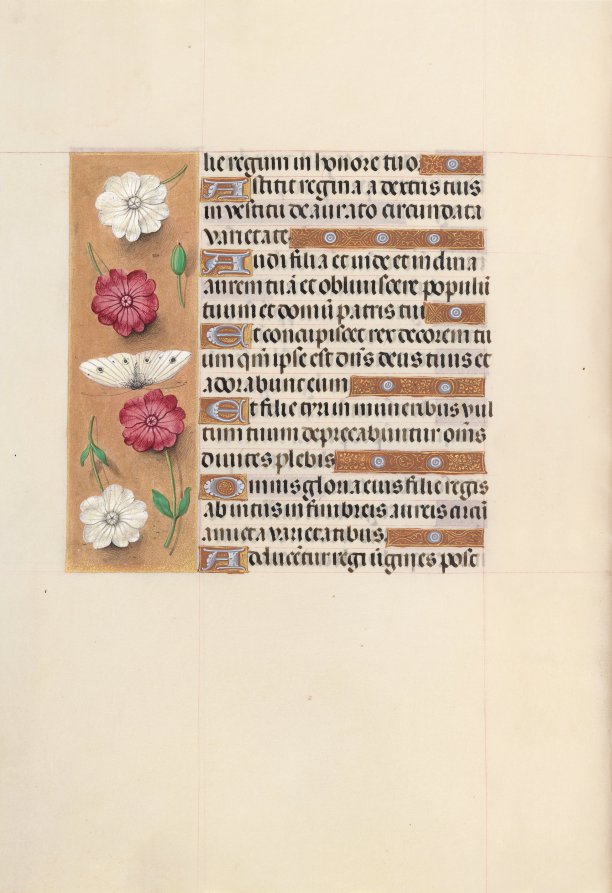 lie regum in honore tuo
Astitit regina a dextris tuis
in vestitu deaurato circumdata
varietate
Audi filia et vide et inclina
aurem tuā et obliviscere populū
tuum et domū patris tui
Et concupiscet rex decorem tu
um qm̄ ipse est dn̄s deus tuus et
adorabunt eum
Et filie tyri in muneribus vul
tum tuum deprecabuntur om̄s
divites plebis
Omnis gloria eius filie regis
ab intus in fimbreis aureis circū
amicta varietatibus
Adducentur regi v̄gines post